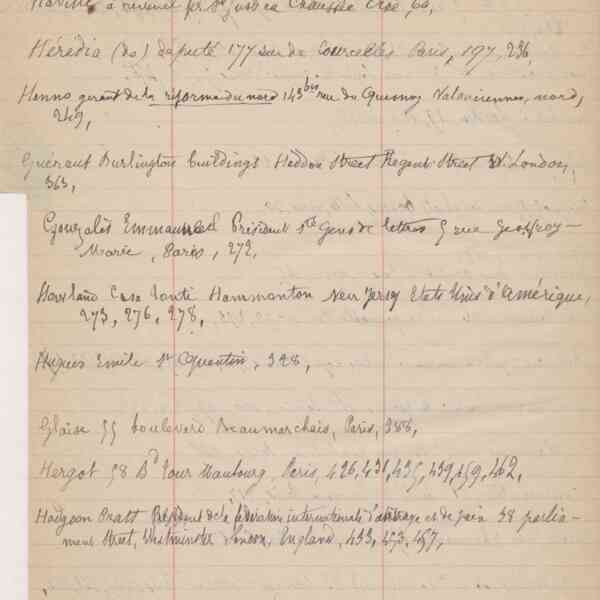 Hérédia (de) député 177 rue de Courcelles Paris, 197, 236,
Henno gérant de la réforme du nord 143 bis rue du Quesnoy Valenciennes, nord,
249,
Guérant Burlington buildings Heddon Street Regent Street W. London,
363,
Gonzalès Emmanuel Président sté Gens de lettres 5 rue Geoffroy-
Marie, Paris, 272,
Howland Casa Tonti Hammonton New Jersey Etats Unis d'Amérique,
273, 276, 278,
Hugues Emile St Quentin, 328,
Glaise 55 boulevard Beaumarchais, Paris, 388,
Hergot 58 Bd Tour Maubourg, Paris, 426, 431, 435, 439, 459, 462,
Hodgson Pratt Président de la fédération internationale d'arbitrage et de paix 38 parlia-
ment Street, Westminster London, England, 433, 453, 457,